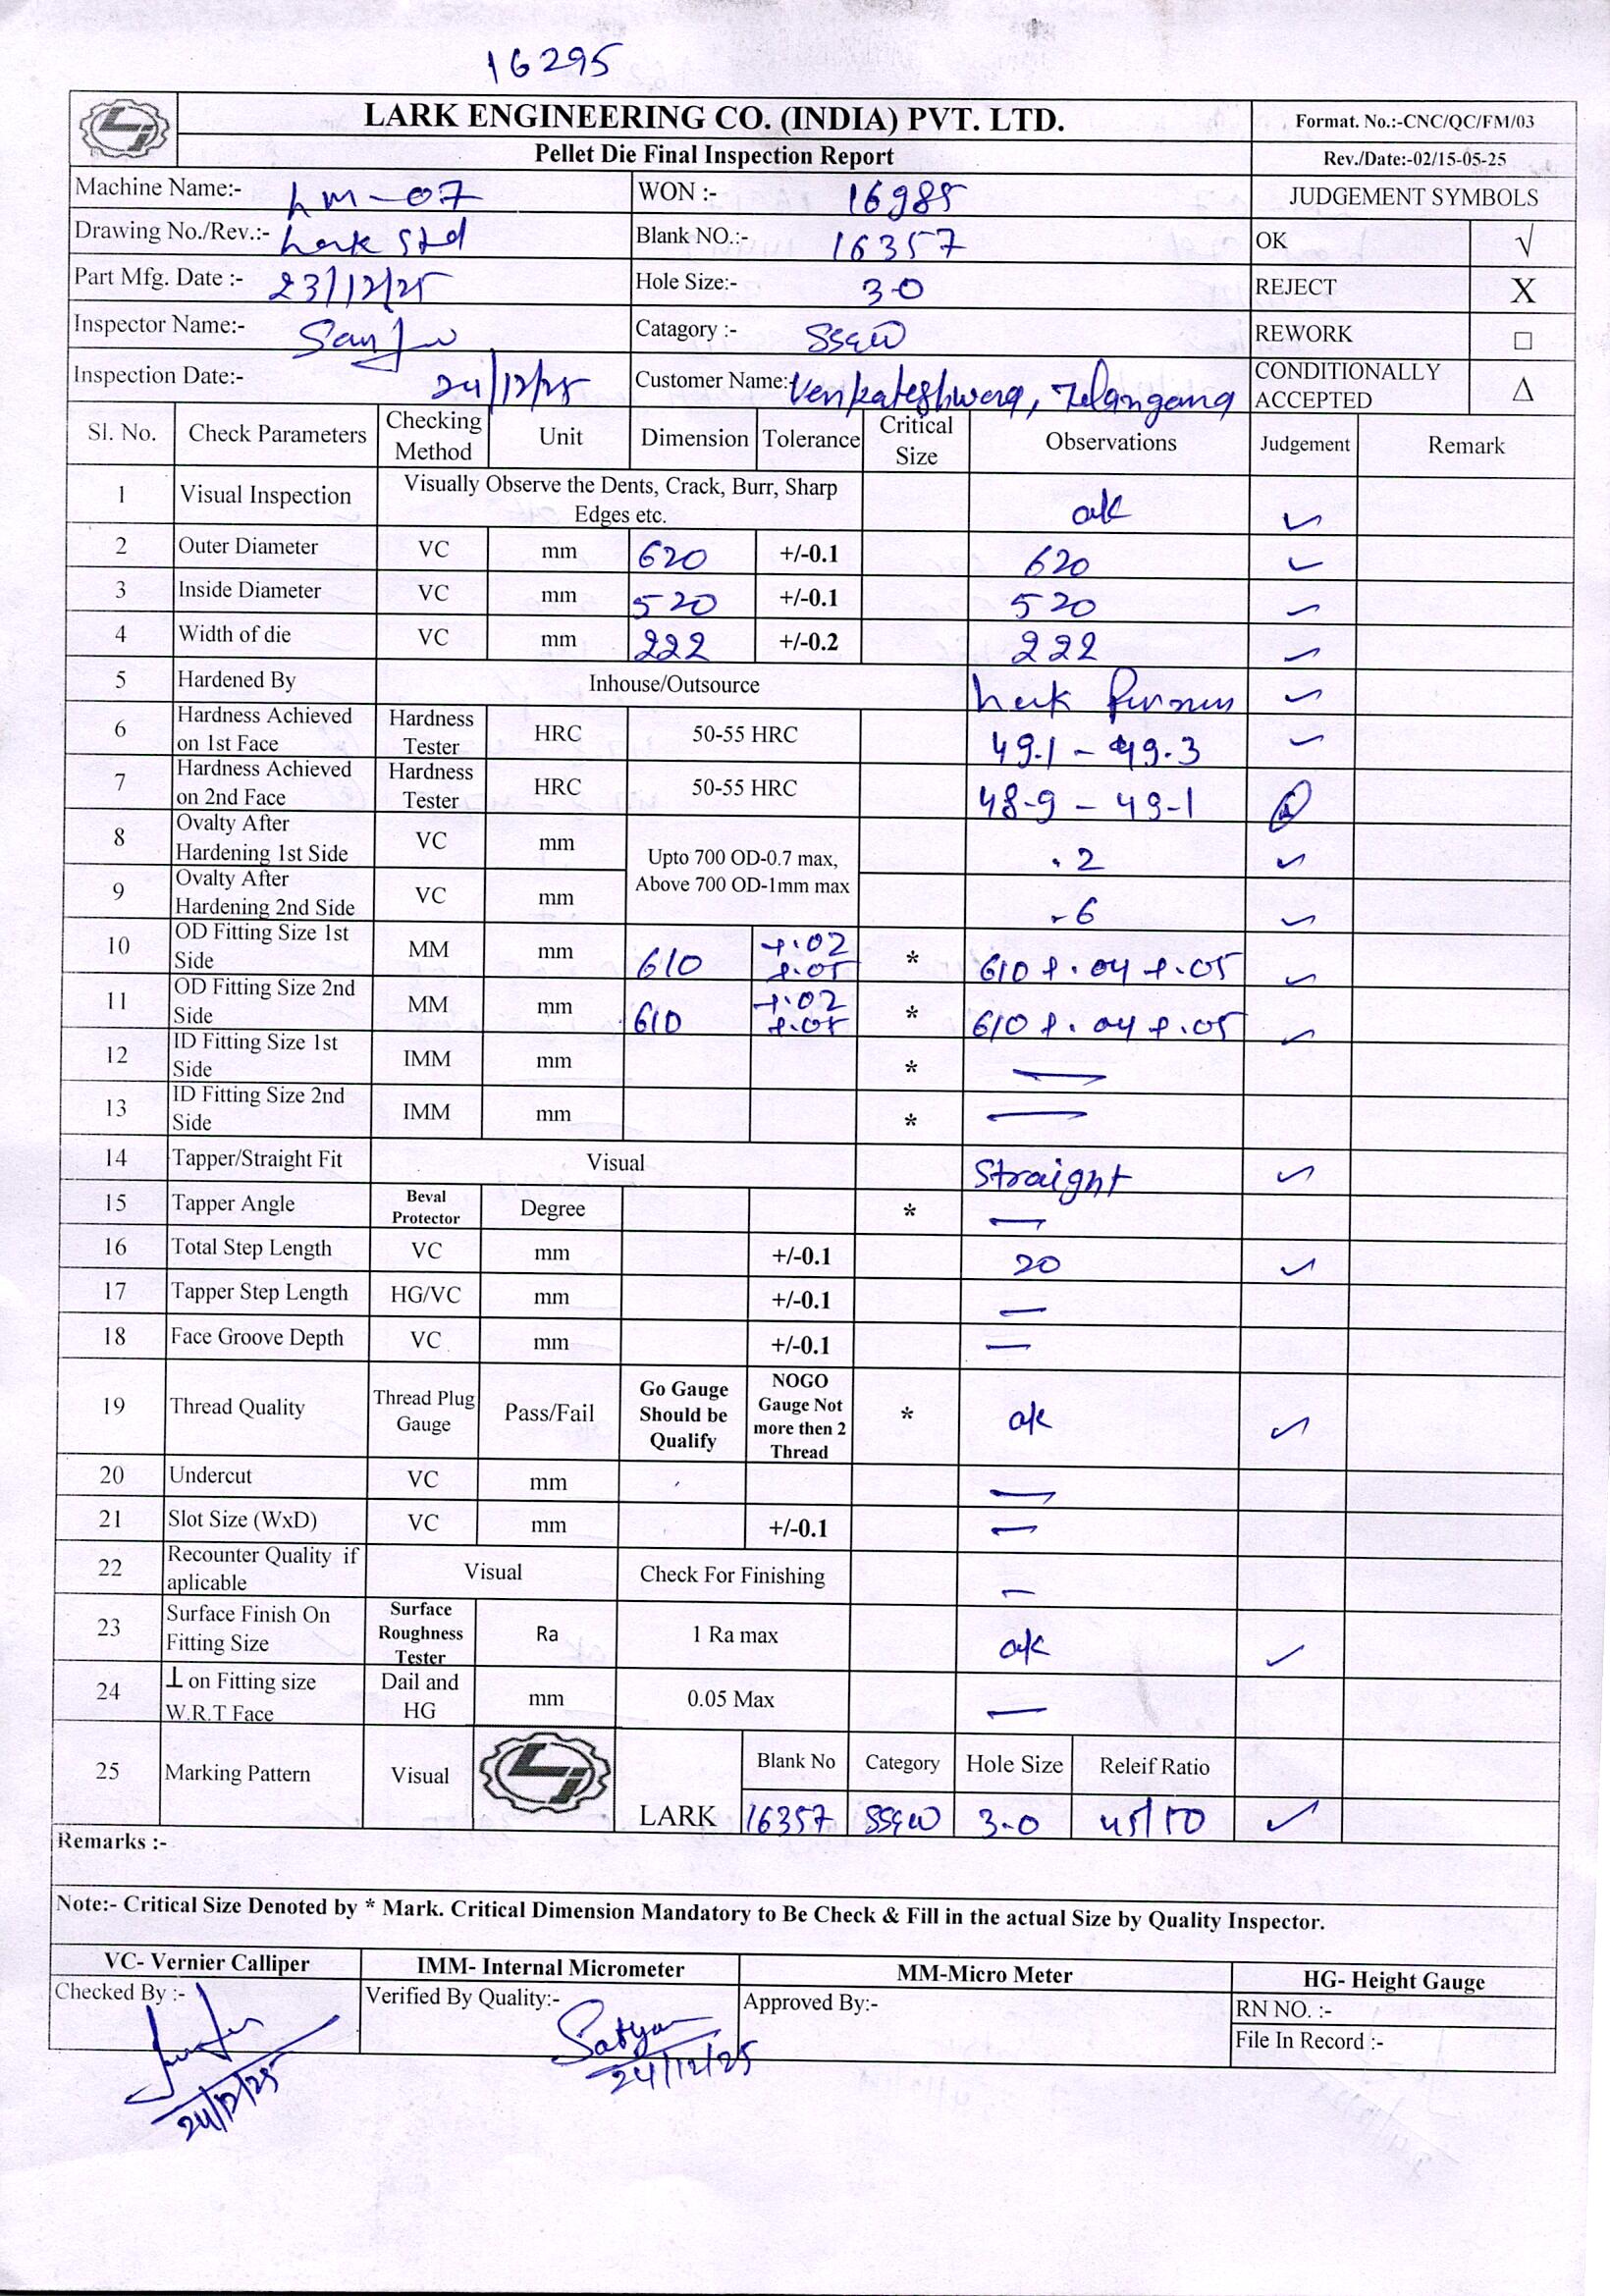 16295
LARK ENGINEERING CO. (INDIA) PVT. LTD.
Format. No.:-CNC/QC/FM/03
Pellet Die Final Inspection Report
Rev./Date:-02/15-05-25
Machine Name:- LM-07 WON :- 16985 JUDGEMENT SYMBOLS
Drawing No./Rev.:- Lark Std Blank NO.:- 16357 OK √
Part Mfg. Date :- 23/12/25 Hole Size:- 3.0 REJECT X
Inspector Name:- Catagory :- SSEW REWORK □
Inspection Date:- 24/12/25 Customer Name:- Venkateshwara, Telangana CONDITIONALLY ACCEPTED Δ
Sl. No. Check Parameters Checking Method Unit Dimension Tolerance Critical Size Observations Judgement Remark
1 Visual Inspection Visually Observe the Dents, Crack, Burr, Sharp Edges etc. ok ✓
2 Outer Diameter VC mm 620 +/-0.1 620 ✓
3 Inside Diameter VC mm 520 +/-0.1 520 ✓
4 Width of die VC mm 222 +/-0.2 222 ✓
5 Hardened By Inhouse/Outsource Lark ✓
6 Hardness Achieved on 1st Face Hardness Tester HRC 50-55 HRC 49.1 - 49.3 ✓
7 Hardness Achieved on 2nd Face Hardness Tester HRC 50-55 HRC 48.9 - 49.1
8 Ovalty After Hardening 1st Side VC mm Upto 700 OD-0.7 max, Above 700 OD-1mm max .2 ✓
9 Ovalty After Hardening 2nd Side VC mm .6 ✓
10 OD Fitting Size 1st Side MM mm 610 +.02 +.05 * 610 +.04 +.05 ✓
11 OD Fitting Size 2nd Side MM mm 610 +.02 +.05 * 610 +.04 +.05 ✓
12 ID Fitting Size 1st Side IMM mm * —
13 ID Fitting Size 2nd Side IMM mm * —
14 Tapper/Straight Fit Visual Straight ✓
15 Tapper Angle Beval Protector Degree * —
16 Total Step Length VC mm +/-0.1 20 ✓
17 Tapper Step Length HG/VC mm +/-0.1 —
18 Face Groove Depth VC mm +/-0.1 —
19 Thread Quality Thread Plug Gauge Pass/Fail Go Gauge Should be Qualify NOGO Gauge Not more then 2 Thread * ok ✓
20 Undercut VC mm —
21 Slot Size (WxD) VC mm +/-0.1 —
22 Recounter Quality if aplicable Visual Check For Finishing —
23 Surface Finish On Fitting Size Surface Roughness Tester Ra 1 Ra max ok ✓
24 ⊥ on Fitting size W.R.T Face Dail and HG mm 0.05 Max —
25 Marking Pattern Visual LARK Blank No Category Hole Size Releif Ratio
16357 SSEW 3.0 45/50 ✓
Remarks :-
Note:- Critical Size Denoted by * Mark. Critical Dimension Mandatory to Be Check & Fill in the actual Size by Quality Inspector.
VC- Vernier Calliper IMM- Internal Micrometer MM-Micro Meter HG- Height Gauge
Checked By :- Verified By Quality:- Satyam Approved By:- RN NO. :-
File In Record :-
24/12/25 24/12/25